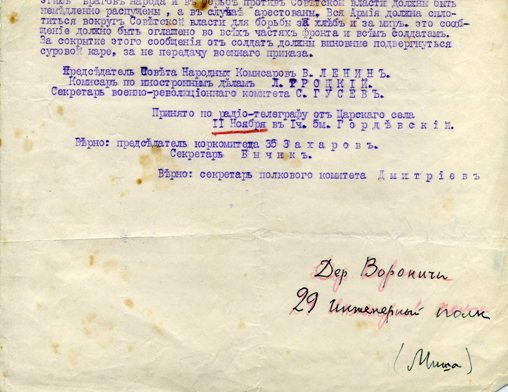 этихъ враговъ народа и въ борьбѣ противъ Совѣтской власти должны быть
немедленно распущены, а въ случаѣ арестованы. Вся Армія должна спло-
титься вокругъ Совѣтской власти для борьбы за хлѣбъ и за миръ. это сооб-
щеніе должно быть оглашено во всѣхъ частяхъ фронта и всѣмъ солдатамъ.
За сокрытіе этого сообщенія отъ солдатъ должны виновные подвергнуться
суровой карѣ, за не передачу военнаго приказа.
Предсѣдатель Совѣта Народныхъ Комисаровъ В. ЛЕНИНЪ.
Комисаръ по иностроннымъ дѣламъ Л. ТРОЦКІЙ.
Секретарь военно-революціоннаго комитета С. ГУСЕВЪ.
Принято по радіо-телеграфу отъ Царскаго села
II Ноября въ Iч. 5м. Гордѣвскій.
Вѣрно: предсѣдатель коркомитеда 35 Захаровъ.
Секретарь Бычикъ.
Вѣрно: секретарь полкового комитета Дмитріевъ
Дер Вороничи
29 инженерный полк
(Миша)